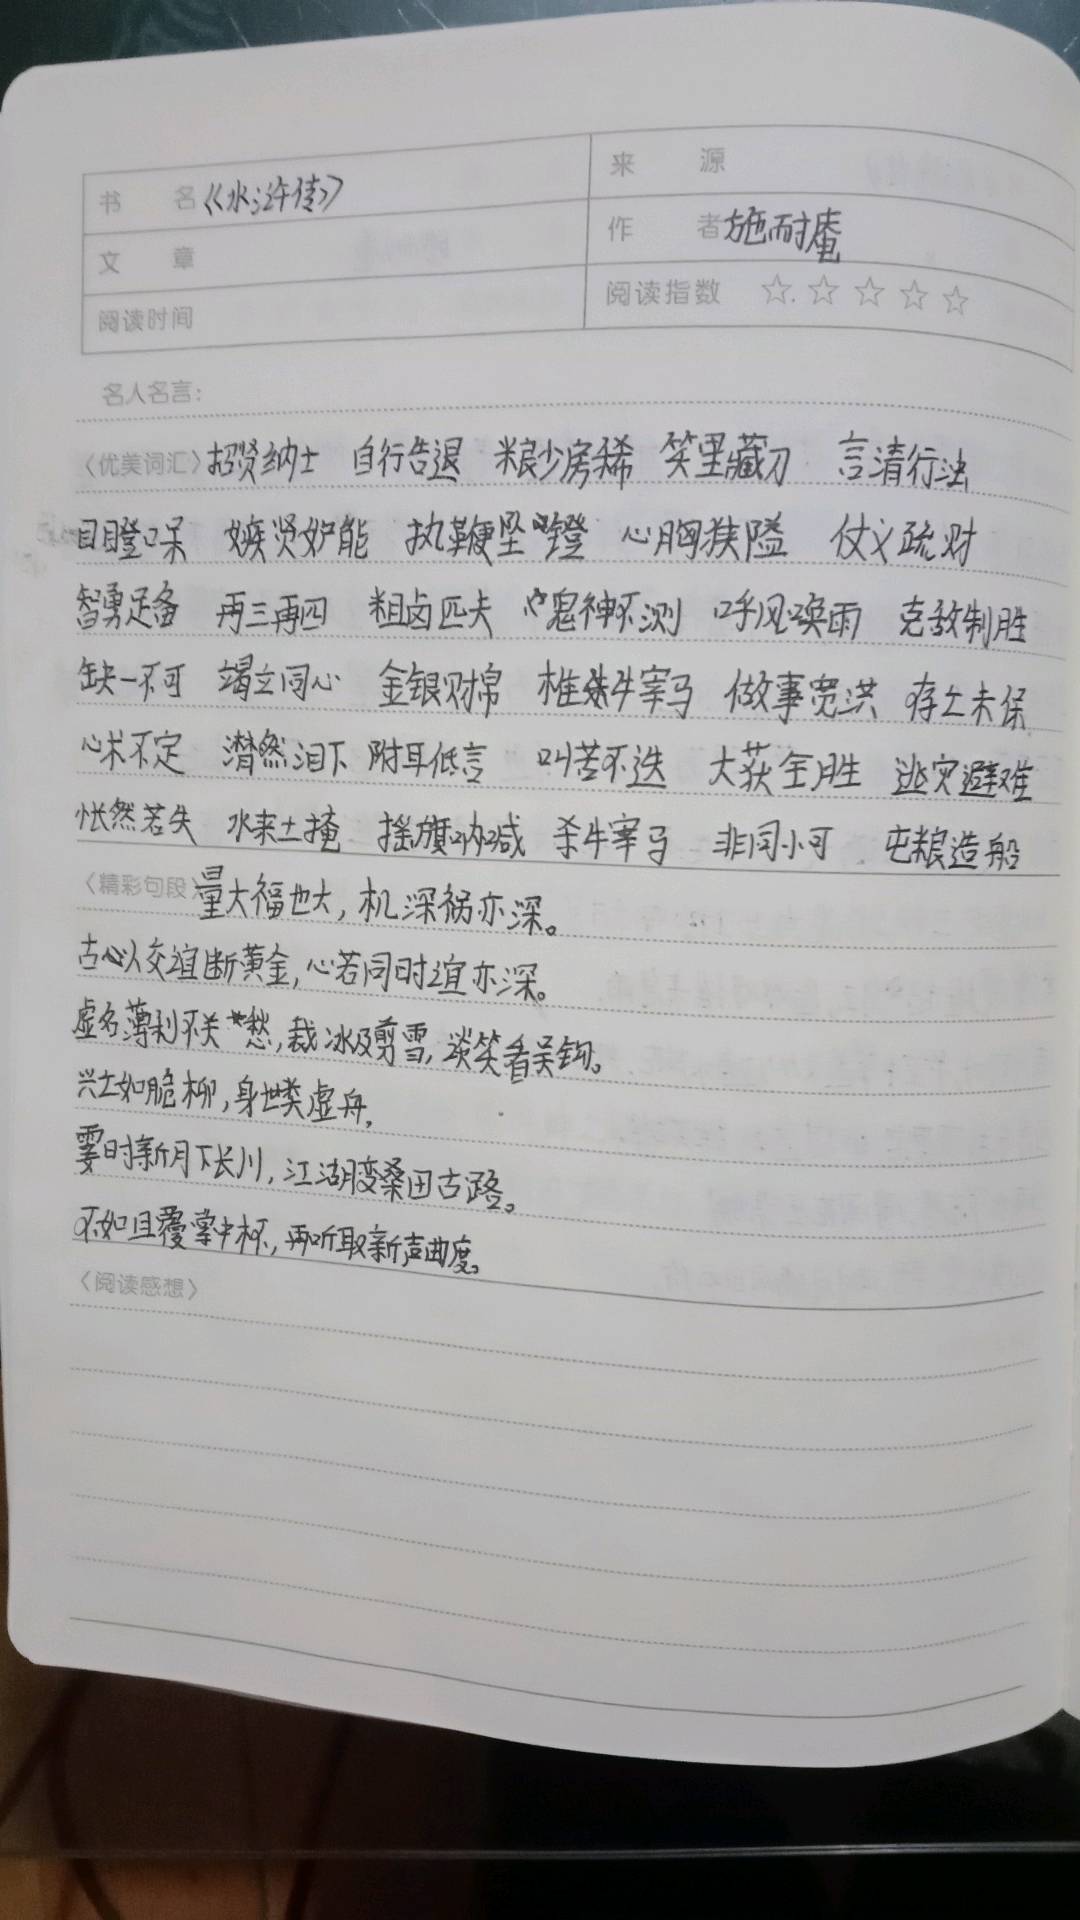 书 名 《水浒传》 来 源
文 章 作 者 施耐庵
阅读时间 阅读指数 ☆ ☆ ☆ ☆ ☆
名人名言:
〈优美词汇〉 招贤纳士 自行告退 粮少房稀 笑里藏刀 言清行浊
目瞪口呆 嫉贤妒能 执鞭坠镫 心胸狭隘 仗义疏财
智勇足备 再三再四 粗卤匹夫 鬼神不测 呼风唤雨 克敌制胜
缺一不可 竭立同心 金银财帛 椎牛宰马 做事宽洪 存亡未保
心术不定 潸然泪下 附耳低言 叫苦不迭 大获全胜 逃灾避难
怅然若失 水来土掩 摇旗呐喊 杀牛宰马 非同小可 屯粮造船
〈精彩句段〉 量大福也大,机深祸亦深。
古人交谊断黄金,心若同时谊亦深。
虚名薄利不关愁,裁冰及剪雪,谈笑看吴钩。
兴亡如脆柳,身世类虚舟,
霎时新月下长川,江湖变桑田古路。
不如且覆掌中杯,再听取新声曲度。
〈阅读感想〉